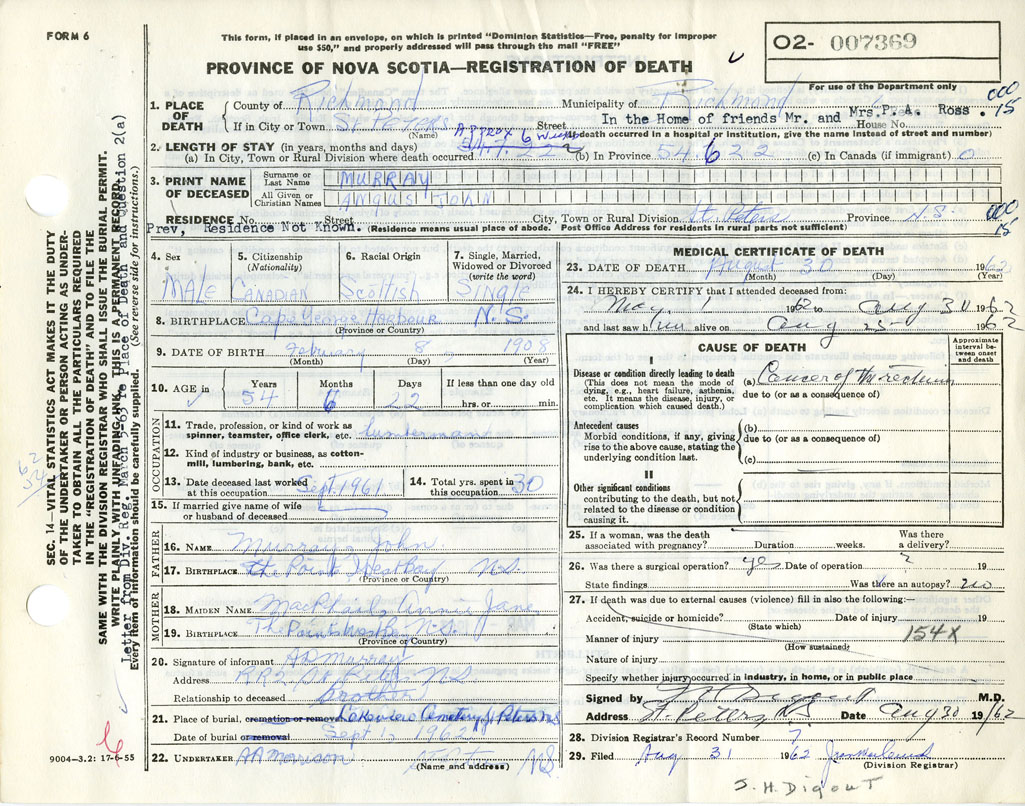 FORM 6
This form, if placed in an envelope, on which is printed "Dominion Statistics—Free, penalty for improper
use $50," and properly addressed will pass through the mail "FREE"
PROVINCE OF NOVA SCOTIA—REGISTRATION OF DEATH
O2- 007369
For use of the Department only
1. PLACE OF DEATH County of Richmond Municipality of Richmond 000 15
In the Home of friends Mr. and Mrs. P. A. Ross.
If in City or Town St Peters Street House No.
(Name) (If death occurred in a hospital or institution, give the name instead of street and number)
2. LENGTH OF STAY (in years, months and days) Approx 6 weeks
(a) In City, Town or Rural Division where death occurred (b) In Province 54 6 22 (c) In Canada (if immigrant) 0
3. PRINT NAME OF DECEASED
Surname or Last Name MURRAY
All Given or Christian Names ANGUS JOHN
RESIDENCE No. Street City, Town or Rural Division St. Peters Province N.S. 000 15
Prev, Residence Not Known. (Residence means usual place of abode. Post Office Address for residents in rural parts not sufficient)
4. Sex MALE
5. Citizenship (Nationality) CANADIAN
6. Racial Origin Scottish
7. Single, Married, Widowed or Divorced (write the word) Single
8. BIRTHPLACE Cape George Harbour N.S.
(Province or Country)
9. DATE OF BIRTH February 8, 1908
(Month) (Day) (Year)
10. AGE in Years 54 Months 6 Days 22 If less than one day old hrs. or min.
OCCUPATION
11. Trade, profession, or kind of work as spinner, teamster, office clerk, etc. Lumberman
12. Kind of industry or business, as cotton-mill, lumbering, bank, etc.
13. Date deceased last worked at this occupation Sept. 1961
14. Total yrs. spent in this occupation 30
15. If married give name of wife or husband of deceased
FATHER
16. NAME Murray, John
17. BIRTHPLACE The Point West Bay N.S.
(Province or Country)
MOTHER
18. MAIDEN NAME MacPhail, Annie Jane
19. BIRTHPLACE The Point West Bay N.S.
(Province or Country)
20. Signature of informant A D Murray
Address RR2 St Peters NS
Relationship to deceased brother
21. Place of burial, cremation or removal Lakeview Cemetery St Peters NS
Date of burial or removal Sept 1, 1962
22. UNDERTAKER AA Morrison St Peters N.S.
(Name and address)
MEDICAL CERTIFICATE OF DEATH
23. DATE OF DEATH August 30 1962
(Month) (Day) (Year)
24. I HEREBY CERTIFY that I attended deceased from:
May 1 1962 to Aug 30 1962
and last saw him alive on Aug 25 1962
CAUSE OF DEATH
Approximate interval between onset and death
I
Disease or condition directly leading to death
(This does not mean the mode of dying, e.g., heart failure, asthenia, etc. It means the disease, injury, or complication which caused death.)
(a) Cancer of the rectum
due to (or as a consequence of)
Antecedent causes
Morbid conditions, if any, giving rise to the above cause, stating the underlying condition last.
(b)
due to (or as a consequence of)
(c)
II
Other significant conditions
contributing to the death, but not related to the disease or condition causing it.
25. If a woman, was the death associated with pregnancy? Duration weeks. Was there a delivery?
26. Was there a surgical operation? yes Date of operation ? 19
State findings Was there an autopsy? no
27. If death was due to external causes (violence) fill in also the following:—
Accident, suicide or homicide? Date of injury 19
(State which)
154X
Manner of injury
(How sustained)
Nature of injury
Specify whether injury occurred in industry, in home, or in public place
Signed by J H Digout M.D.
Address St. Peters N.S. Date Aug 30 19/62
28. Division Registrar's Record Number 7
29. Filed Aug 31 1962
(Division Registrar)
J. H. Digout
SEC. 14—VITAL STATISTICS ACT MAKES IT THE DUTY
OF THE UNDERTAKER OR PERSON ACTING AS UNDER-
TAKER TO OBTAIN ALL THE PARTICULARS REQUIRED
IN THE "REGISTRATION OF DEATH" AND TO FILE THE
SAME WITH THE DIVISION REGISTRAR WHO SHALL ISSUE THE BURIAL PERMIT.
WRITE PLAINLY WITH UNFADING INK. THIS IS A PERMANENT RECORD.
Letter from Div. Reg. March 5-63 re place of Death and Question 2(a)
Every item of information should be carefully supplied. (See reverse side for instructions.)
62
54
9004—3.2: 17-6-55